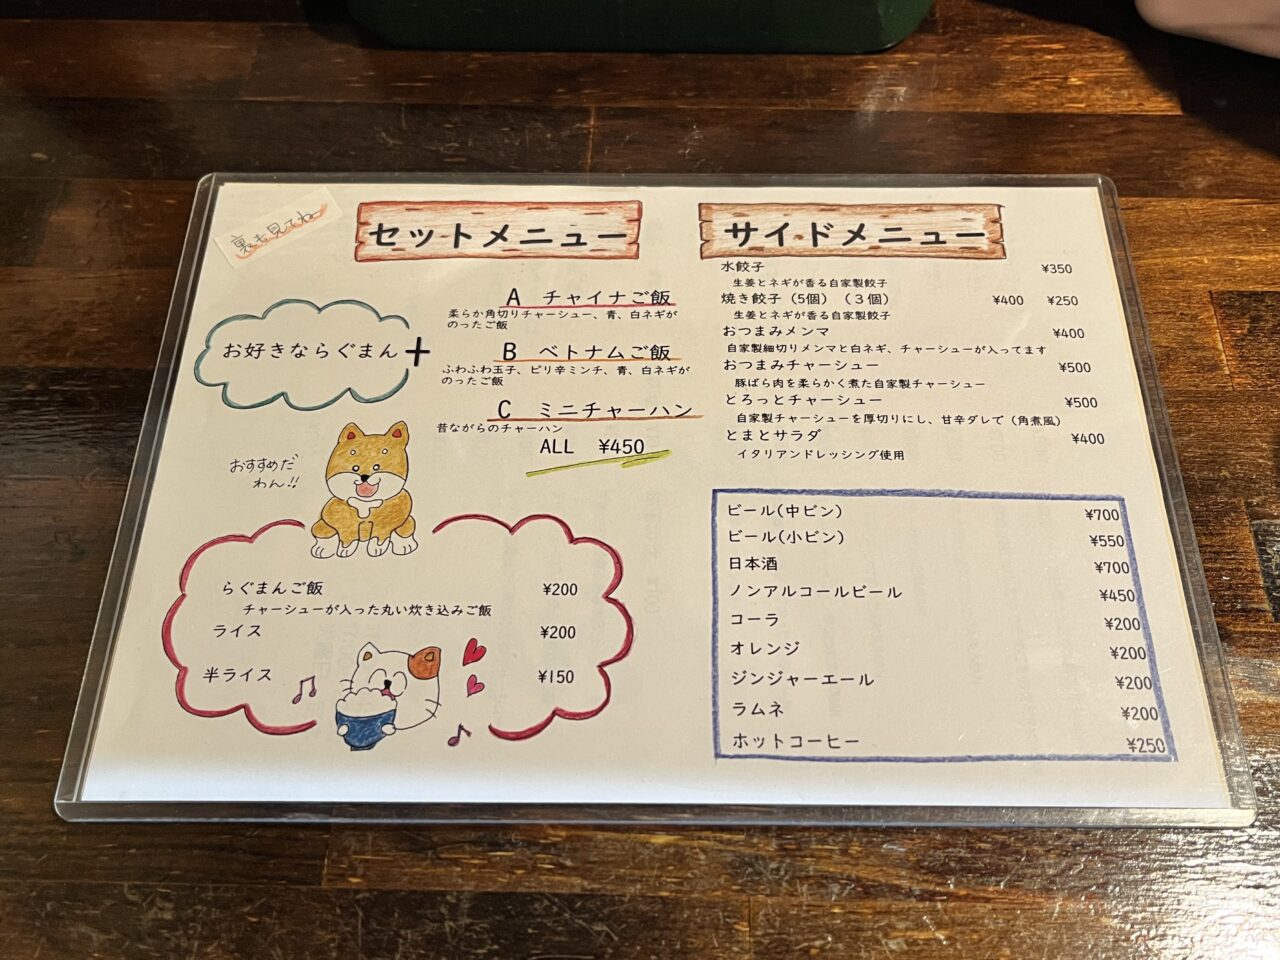 裏も見てね
セットメニュー
お好きならぐまん+
A チャイナご飯
柔らか角切りチャーシュー、青、白ネギが
のったご飯
B ベトナムご飯
ふわふわ玉子、ピリ辛ミンチ、青、白ネギが
のったご飯
C ミニチャーハン
昔ながらのチャーハン
ALL ¥450
おすすめだ
わん!!
らぐまんご飯 ¥200
チャーシューが入った丸い炊き込みご飯
ライス ¥200
半ライス ¥150
サイドメニュー
水餃子 ¥350
生姜とネギが香る自家製餃子
焼き餃子(5個)(3個) ¥400 ¥250
生姜とネギが香る自家製餃子
おつまみメンマ ¥400
自家製細切りメンマと白ネギ、チャーシューが入ってます
おつまみチャーシュー ¥500
豚ばら肉を柔らかく煮た自家製チャーシュー
とろっとチャーシュー ¥500
自家製チャーシューを厚切りにし、甘辛ダレで(角煮風)
とまとサラダ ¥400
イタリアンドレッシング使用
ビール(中ビン) ¥700
ビール(小ビン) ¥550
日本酒 ¥700
ノンアルコールビール ¥450
コーラ ¥200
オレンジ ¥200
ジンジャーエール ¥200
ラムネ ¥200
ホットコーヒー ¥250